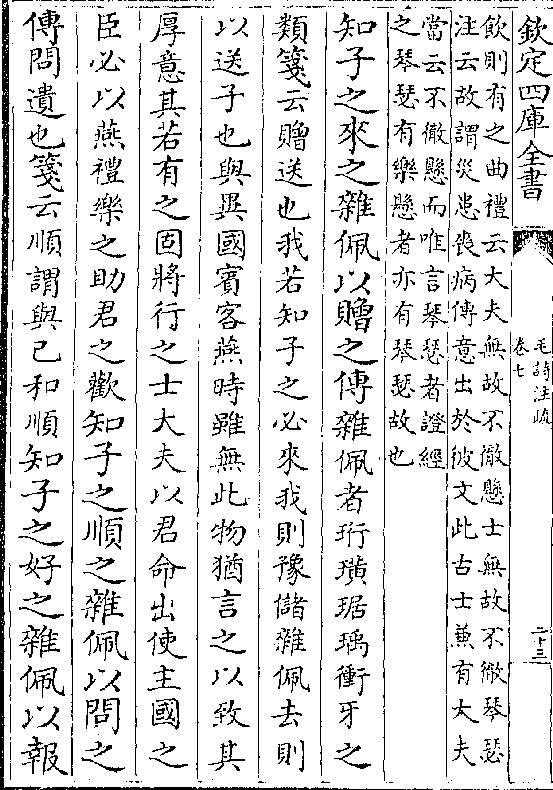 欽定四庫全書
毛詩注疏
卷七
二十三
飲則有之曲禮云大夫無故不徹懸士無故不徹琴瑟
注云故謂災患喪病傳意出於彼文此古士兼有大夫
當云不徹懸而唯言琴瑟者證經
之琴瑟有樂懸者亦有琴瑟故也
知子之來之雜佩以贈之傳雜佩者珩璜琚瑀衝牙之
類箋云贈送也我若知子之必來我則豫儲雜佩去則
以送子也與異國賓客燕時雖無此物猶言之以致其
厚意其若有之固將行之士大夫以君命出使主國之
臣必以燕禮樂之助君之歡知子之順之雜佩以問之
傳問遺也箋云順謂與己和順知子之好之雜佩以報